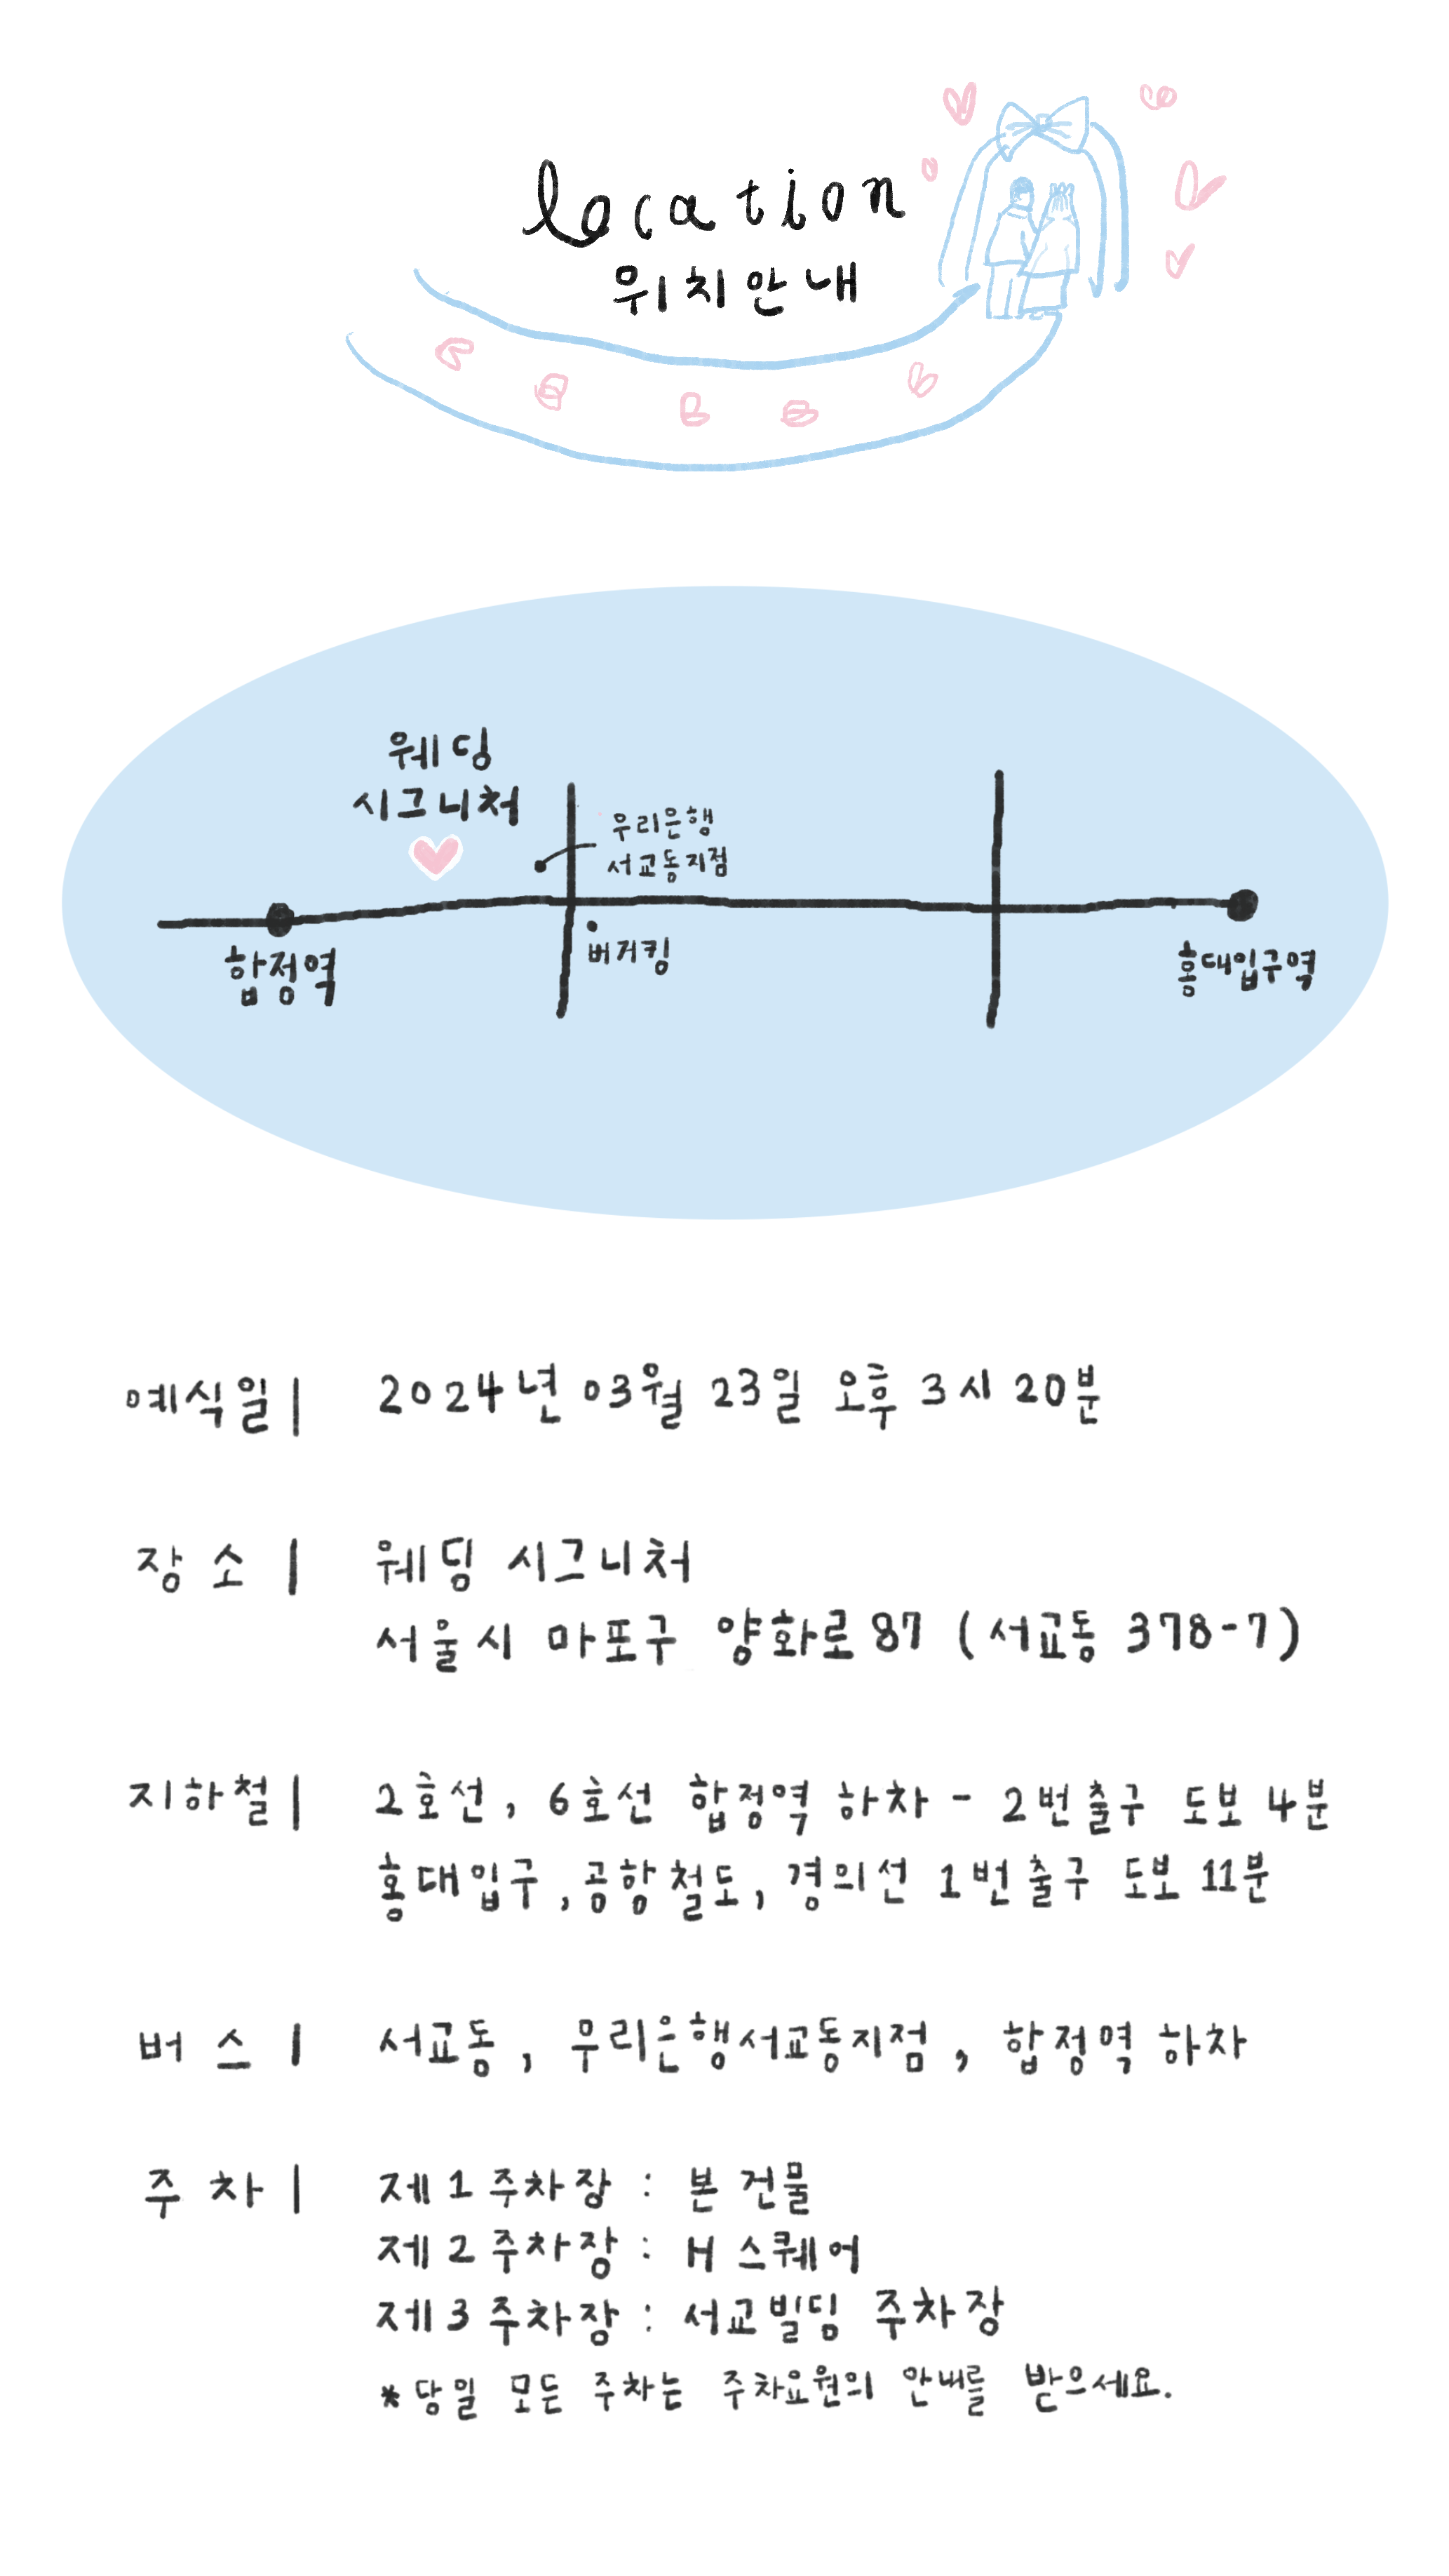 location
위치안내
웨딩
시그니처
우리은행
서교동지점
합정역
버거킹
홍대입구역
예식일| 2024년 03월 23일 오후 3시 20분
장소| 웨딩 시그니처
서울시 마포구 양화로87 (서교동 378-7)
지하철| 2호선, 6호선 합정역 하차 - 2번출구 도보 4분
홍대입구, 공항철도, 경의선 1번출구 도보 11분
버스| 서교동, 우리은행서교동지점, 합정역 하차
주차| 제1주차장 : 본 건물
제2주차장 : H 스퀘어
제3주차장 : 서교빌딩 주차장
*당일 모든 주차는 주차요원의 안내를 받으세요.